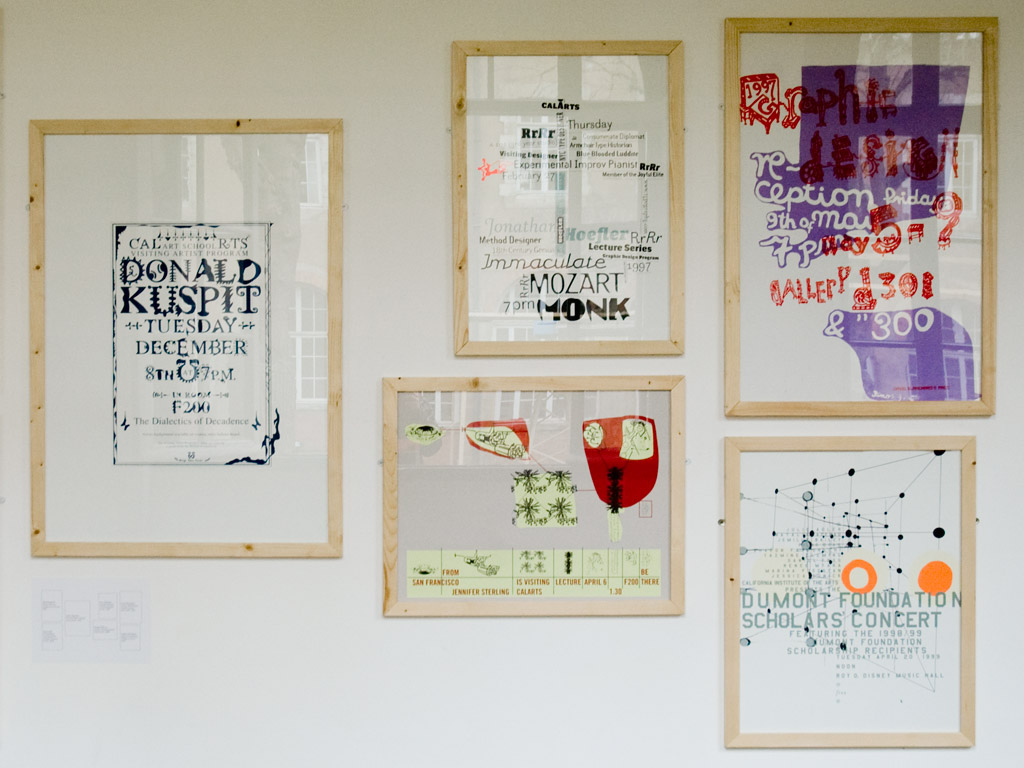 CAL ART SCHOOL ARTS
VISITING ARTIST PROGRAM
DONALD
KUSPIT
TUESDAY
DECEMBER
8TH AT 7PM.
IN ROOM
F200
The Dialectics of Decadence
CALARTS
Thursday
RrRr
Consummate Diplomat
Armchair Type Historian
Visiting Designer
Blue Blooded Luddite
Experimental Improv Pianist
RrRr
February 27
Member of the Joyful Elite
Jonathan
Hoefler
RrRr
Method Designer
Lecture Series
18th Century Genius
Graphic Design Program
Immaculate
1997
RrRr
MOZART
7pm
MONK
1997
Graphic
design
re-
ception friday
9th of may
7pm
way 5-?
GALLERY 1301
& "300
FROM
SAN FRANCISCO
JENNIFER STERLING
IS VISITING
CALARTS
LECTURE
APRIL 6
1.30
F200
BE
THERE
CALIFORNIA INSTITUTE OF THE ARTS
PRESENTS THE
DUMONT FOUNDATION
SCHOLARS CONCERT
FEATURING THE 1998/99
DUMONT FOUNDATION
SCHOLARSHIP RECIPIENTS
TUESDAY APRIL 20, 1999
NOON
ROY O DISNEY MUSIC HALL